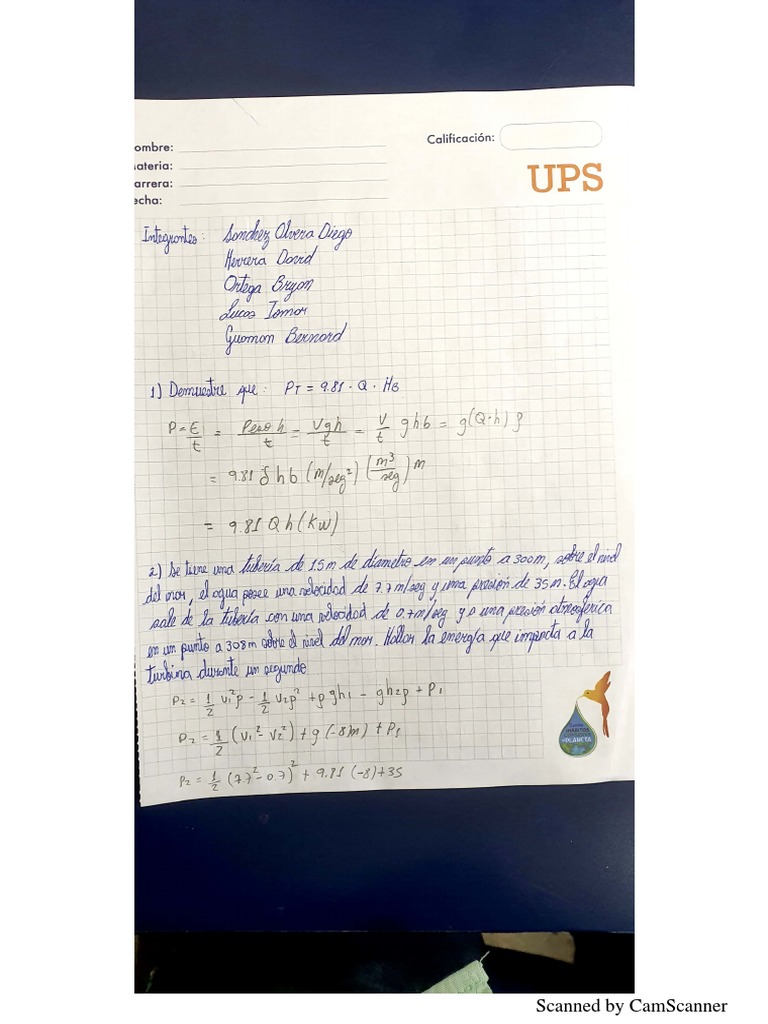 ombre:
Calificación:
ateria:
arrera:
echa:
UPS
Integrantes: Sanchez Olvera Diego
Herrera David
Ortega Bryan
Lucas Tomar
Guaman Bernard
1) Demuestre que: PT = 9.81 · Q · HB
P = E/t = Peso h/t = Vgh/t = V/t ghb = g(Q·h) ρ
= 9.81 δ hb (m/seg²) (m³/seg) m
= 9.81 Q h (KW)
2) Se tiene una tubería de 1.5m de diametro en un punto a 300m, sobre el nivel
del mar, el agua posee una velocidad de 7.7 m/seg y una presión de 35m. El agua
sale de la tubería con una velocidad de 0.7m/seg y a una presión atmosferica
en un punto a 308m sobre el nivel del mar. Hallar la energía que impacta a la
turbina durante un segundo
P2 = 1/2 V1²ρ - 1/2 V2ρ² + ρgh1 - gh2ρ + P1
P2 = 1/2 (V1² - V2²) + g (-8m) + P1
P2 = 1/2 (7.7² - 0.7)² + 9.81 (-8) + 35
HÁBITOS
PLANETA
Scanned by CamScanner